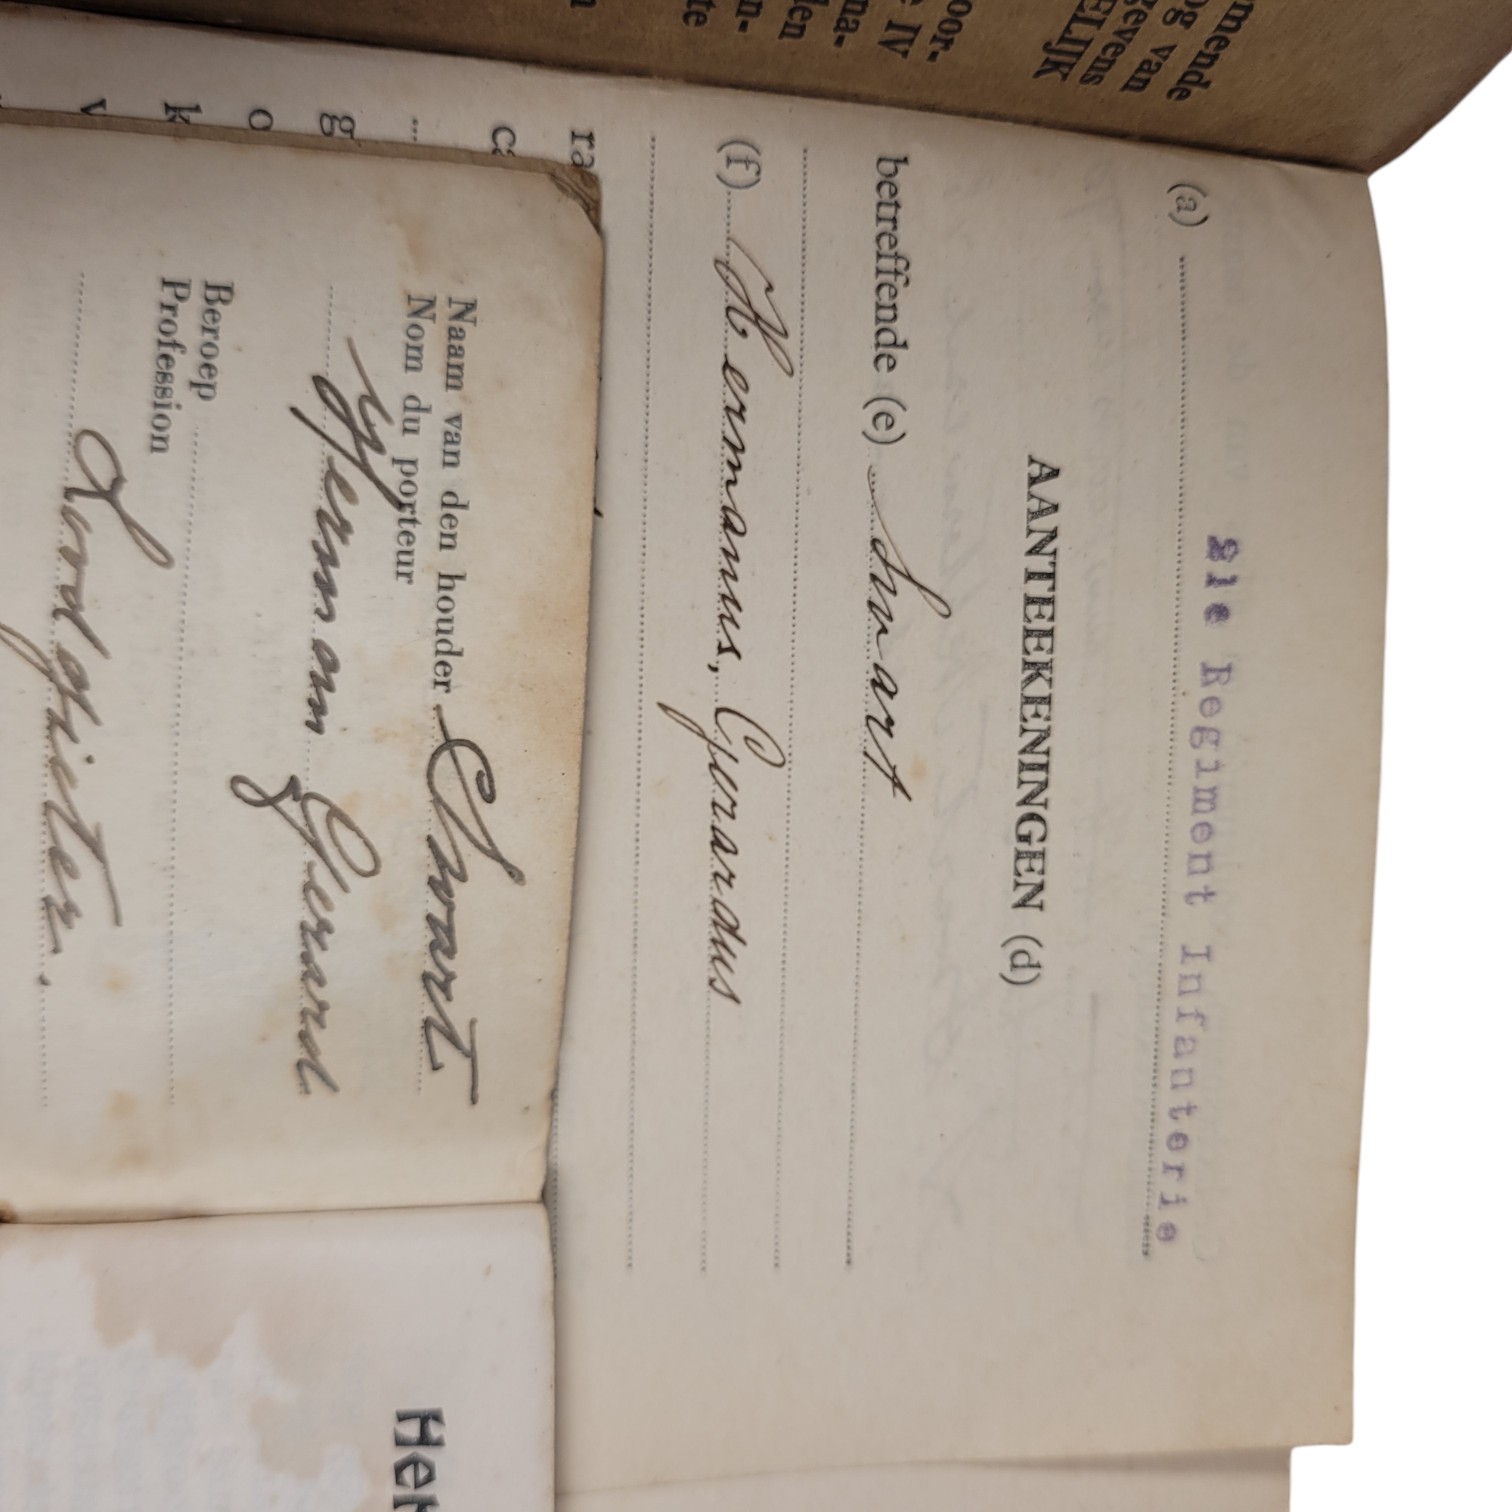 mende
og van
gevens
ELIJK
oor-
IV
na-
den
n-
te
(a)
21e Regiment Infanterie
AANTEEKENINGEN (d)
betreffende (e) Swart
(f) Hermanus, Gerardus
ra
g
o
k
v
Naam van den houder Swart
Nom du porteur
Herman Gerard
Beroep
Profession
Loodgieter.
Her